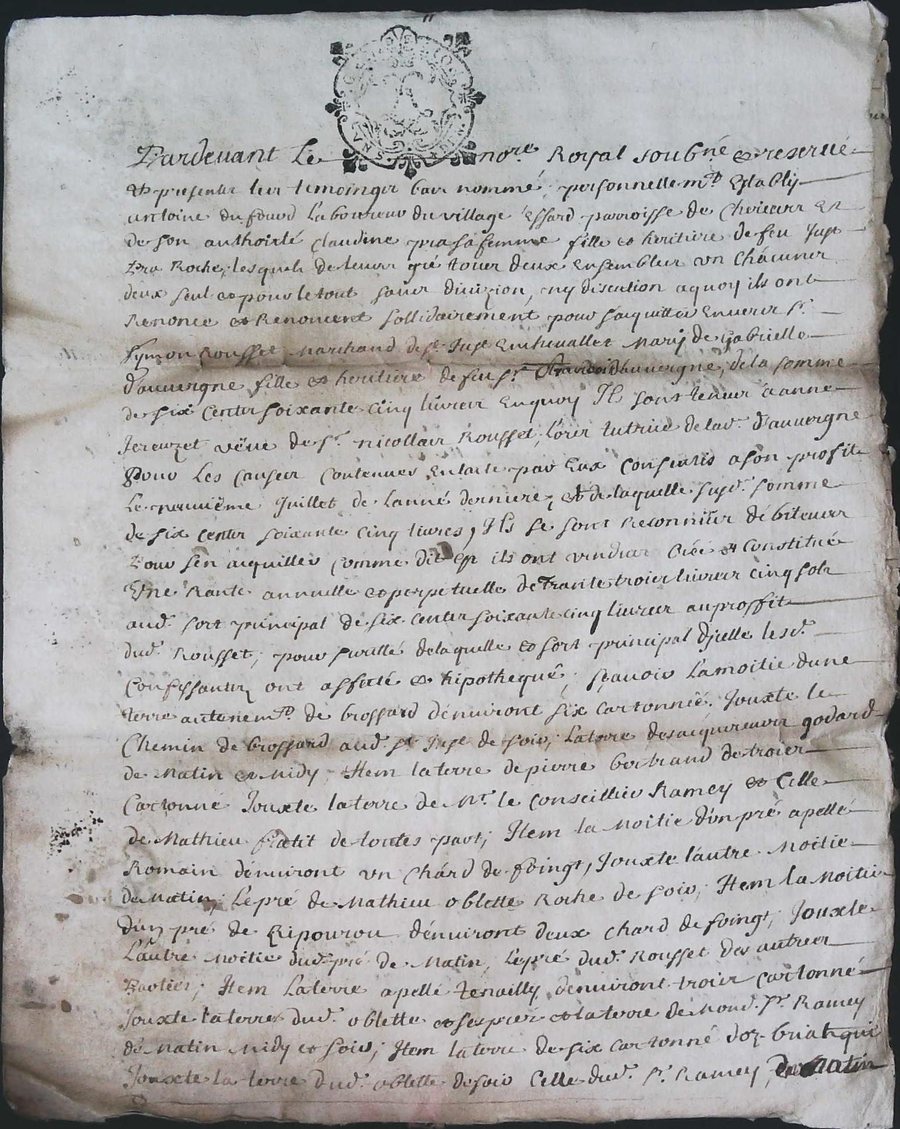 Pardevant Le nore Royal soubné & reservé
et presenter les temoinger bas nommé personnellemt Establij
antoine du fourd laboureur du village Essard parroisse de Cherier Et
de son authorité Claudine pra sa femme fille et heritiere de feu Just
pra Roche, lesquels de leurs gré tour deux Ensembler un Châcuner
deux seul et pour le tout sauer divizion, ny discution a quoy ils ont
Renoncé et Renoncent sollidairement pour s'aquitter Enverer Sr
Symon Rousset Marchand de St Just Enchevallet Mary de Gabrielle
D'auvergne fille et heritiere de feu Sr francois Dauvergne, de la somme
de six Center soixante Cinq livrer Enquoy Il sont teneur jeanne
vëue de Sr nicollair Rousset, Lorer tutrice de lad. D'auvergne
pour Les Causer Contenuer En lacte par Eux Consentis a son profit
Le neuuiême Juillet de Lanné derniere, et de laquelle susd. somme
de six Center soixante Cinq livres, Ils se sont Reconnuer débiteurer
pour sen aiquitter Comme dit est ils ont vendüer Créé et Constitué
Une Rante annuelle et perpetuelle de trante troier livrer Cinq solz
aud. sort principal de six Center soixante Cinq livrer au proffit
dud. Rousset; pour surtté de laquelle et sort principal Djcelle lesd.
Confessanter ont affecté et hipothequé; sçauoir La moitié dune
terre au tenemt. de brossard dénuiront six Cartonnéé, Jouxte le
Chemin de brossard aud. St Just de soir, La terre de godard
de Matin et Midy, Item la terre de pierre bertrand de troier
Cartonné Jouxte la terre de Mr. le Conseillier Ramey et Celle
de Mathieu de toutes part; Item La Moitié dun pré apellé
Romain dénuiront un Chârd de foingt, Jouxte l'autre Moitié
de Matin, Le pré de Mathieu oblette Roche de soir; Item La Moitié
dun pré de Ripourou dénuiront deux Chard de foingt, Jouxte
L'autre Moitié dud. pré de Matin, le pré dud. Rousset des autrer
partier; Item La terre apellé tenailly dénuiront troir Cartonné
Jouxte la terre dud. oblette et la terre de Mond. Sr Ramey
de Matin Midy et soir; Item la terre de six Cartonné
Jouxte la terre dud. oblette de soir Celle dud. Sr. Ramey, de Matin